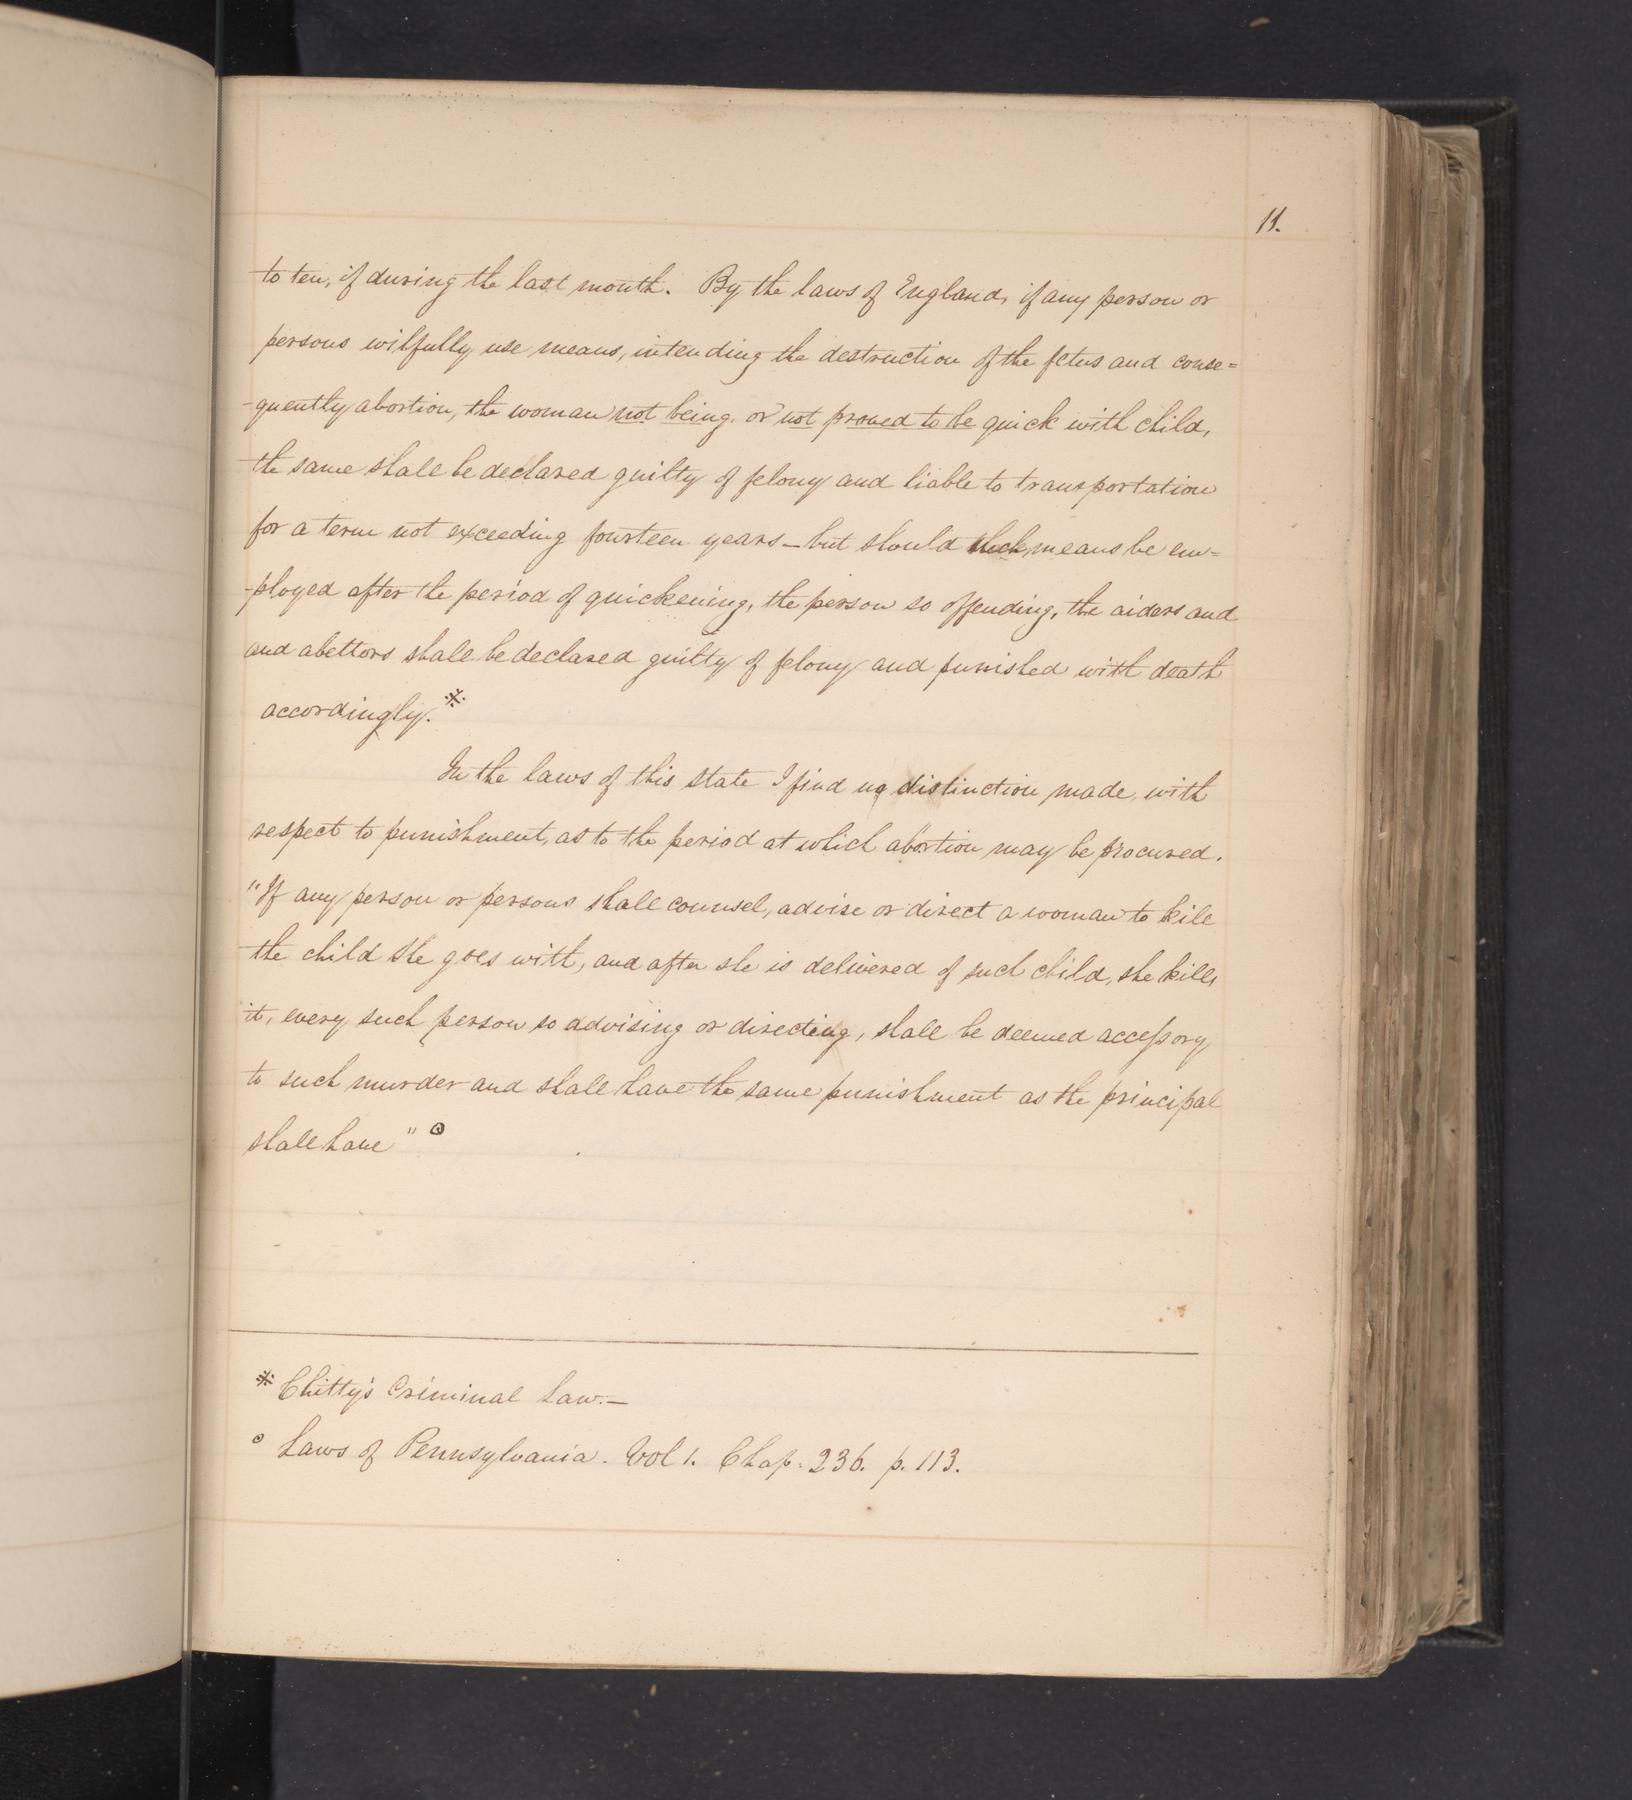 11.
to ten, if during the last month. By the laws of England, if any person or
persons wilfully use means, intending the destruction of the fetus and conse=
-quently abortion, the woman not being. or not proved to be quick with child,
the same shall be declared guilty of felony and liable to transportation
for a term not exceeding fourteen years_but should such means be em=
-ployed after the period of quickening, the person so offending, the aiders and
and abettors shall be declared guilty of felony and punished with death
accordingly.※
In the laws of this state I find no distinction made, with
respect to punishment, as to the period at which abortion may be procured.
"If any person or persons shall counsel, advise or direct a woman to kill
the child she goes with, and after she is delivered of such child, she kills
it, every such person so advising or directing, shall be deemed accessory
to such murder and shall have the same punishment as the principal
shall have" °
※ Chitty's Criminal Law.—
° Laws of Pennsylvania. Vol 1. Chap: 236. p. 113.